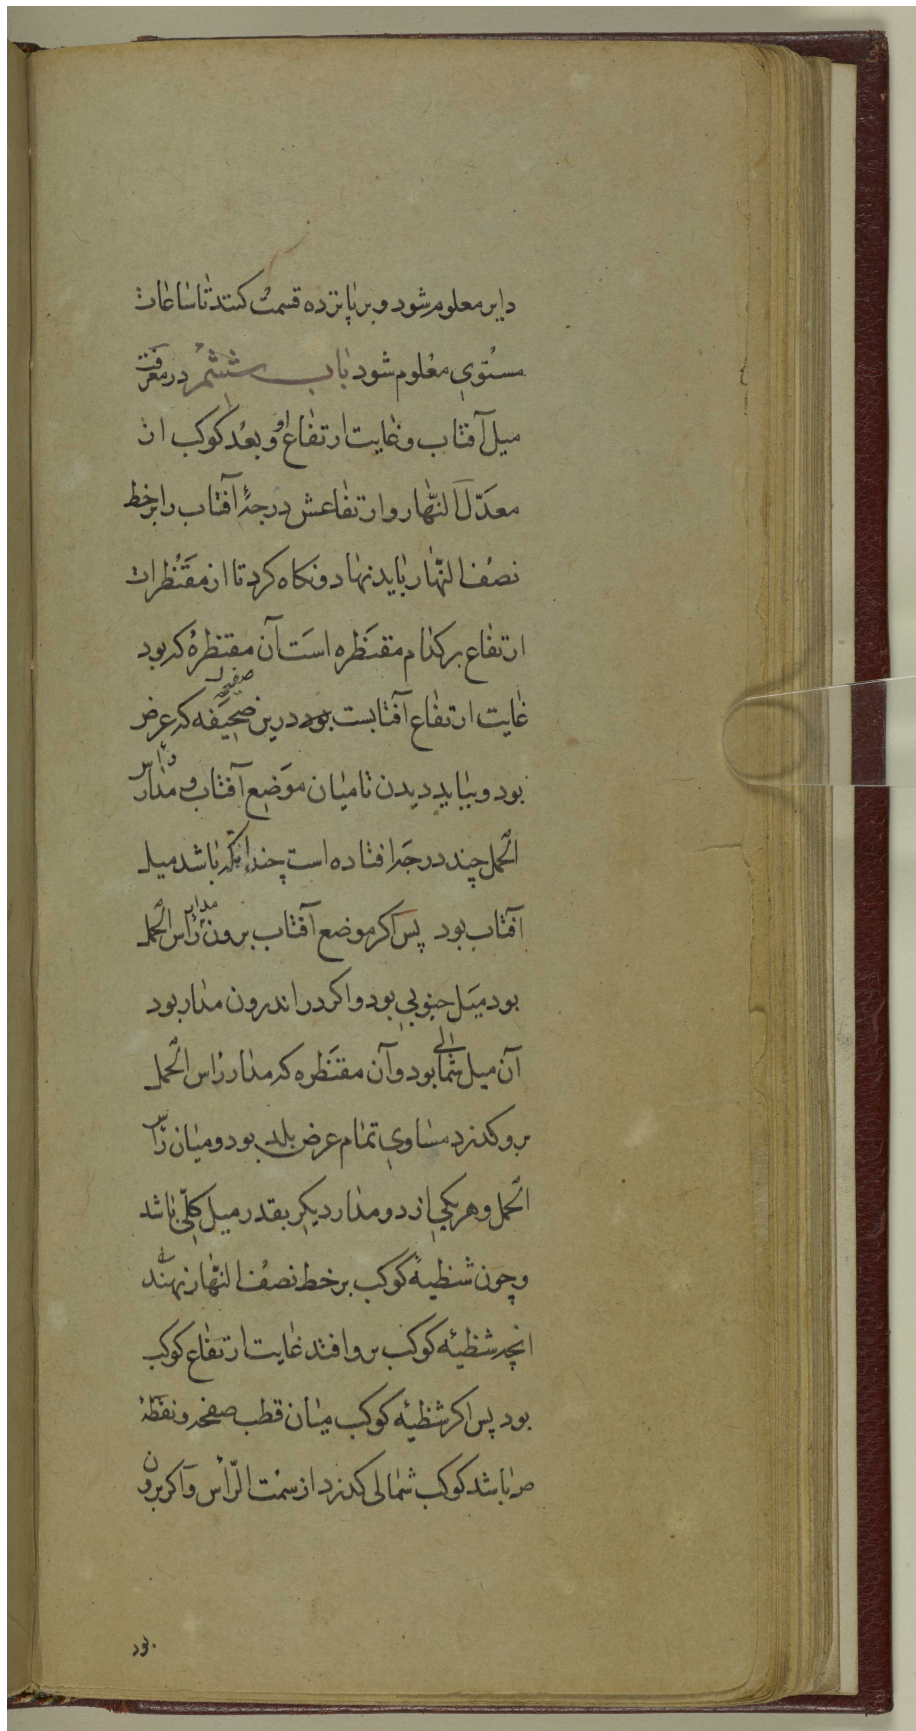 دایر معلوم شود و بر پانزده قسمت کنند تا ساعات
مستوی معلوم شود باب ششم در معرفت
میل آفتاب و غایت ارتفاع او و بعد کوکب از
معدّل النّهار و ارتفاعش درجهٔ آفتاب را بر خط
نصف النّهار باید نهاد و نکاه کرد تا از مقنطرات
ارتفاع بر کدام مقنطره است آن مقنطرهٔ که بود
غایت ارتفاع آفتابست بود درین صحیفه صفیحه که عرض
بود و بباید دیدن تا میان موضع آفتاب و مدار راس
الحمل چند درجه افتاده است چندانکه باشد میل
آفتاب بود پس اکر موضع آفتاب برون مدار راس الحمل
بود میل جنوبی بود و اکر در اندرون مدار بود
آن میل شمالی بود و آن مقنطره که مدار راس الحمل
برو کذرد مساوی تمام عرض بلد بود و میان راس
الحمل و هر یکی از دو مدار دیکر بقدر میل کلّی باشد
و چون شظیهٔ کوکب بر خط نصف النّهار نهند
انچه شظیهٔ کوکب برو افتد غایت ارتفاع کوکب
بود پس اکر شظیهٔ کوکب میان قطب صفحه و نقطهٔ
ص باشد کوکب شمالی کذرد از سمت الرّأس و اکر برون
بود